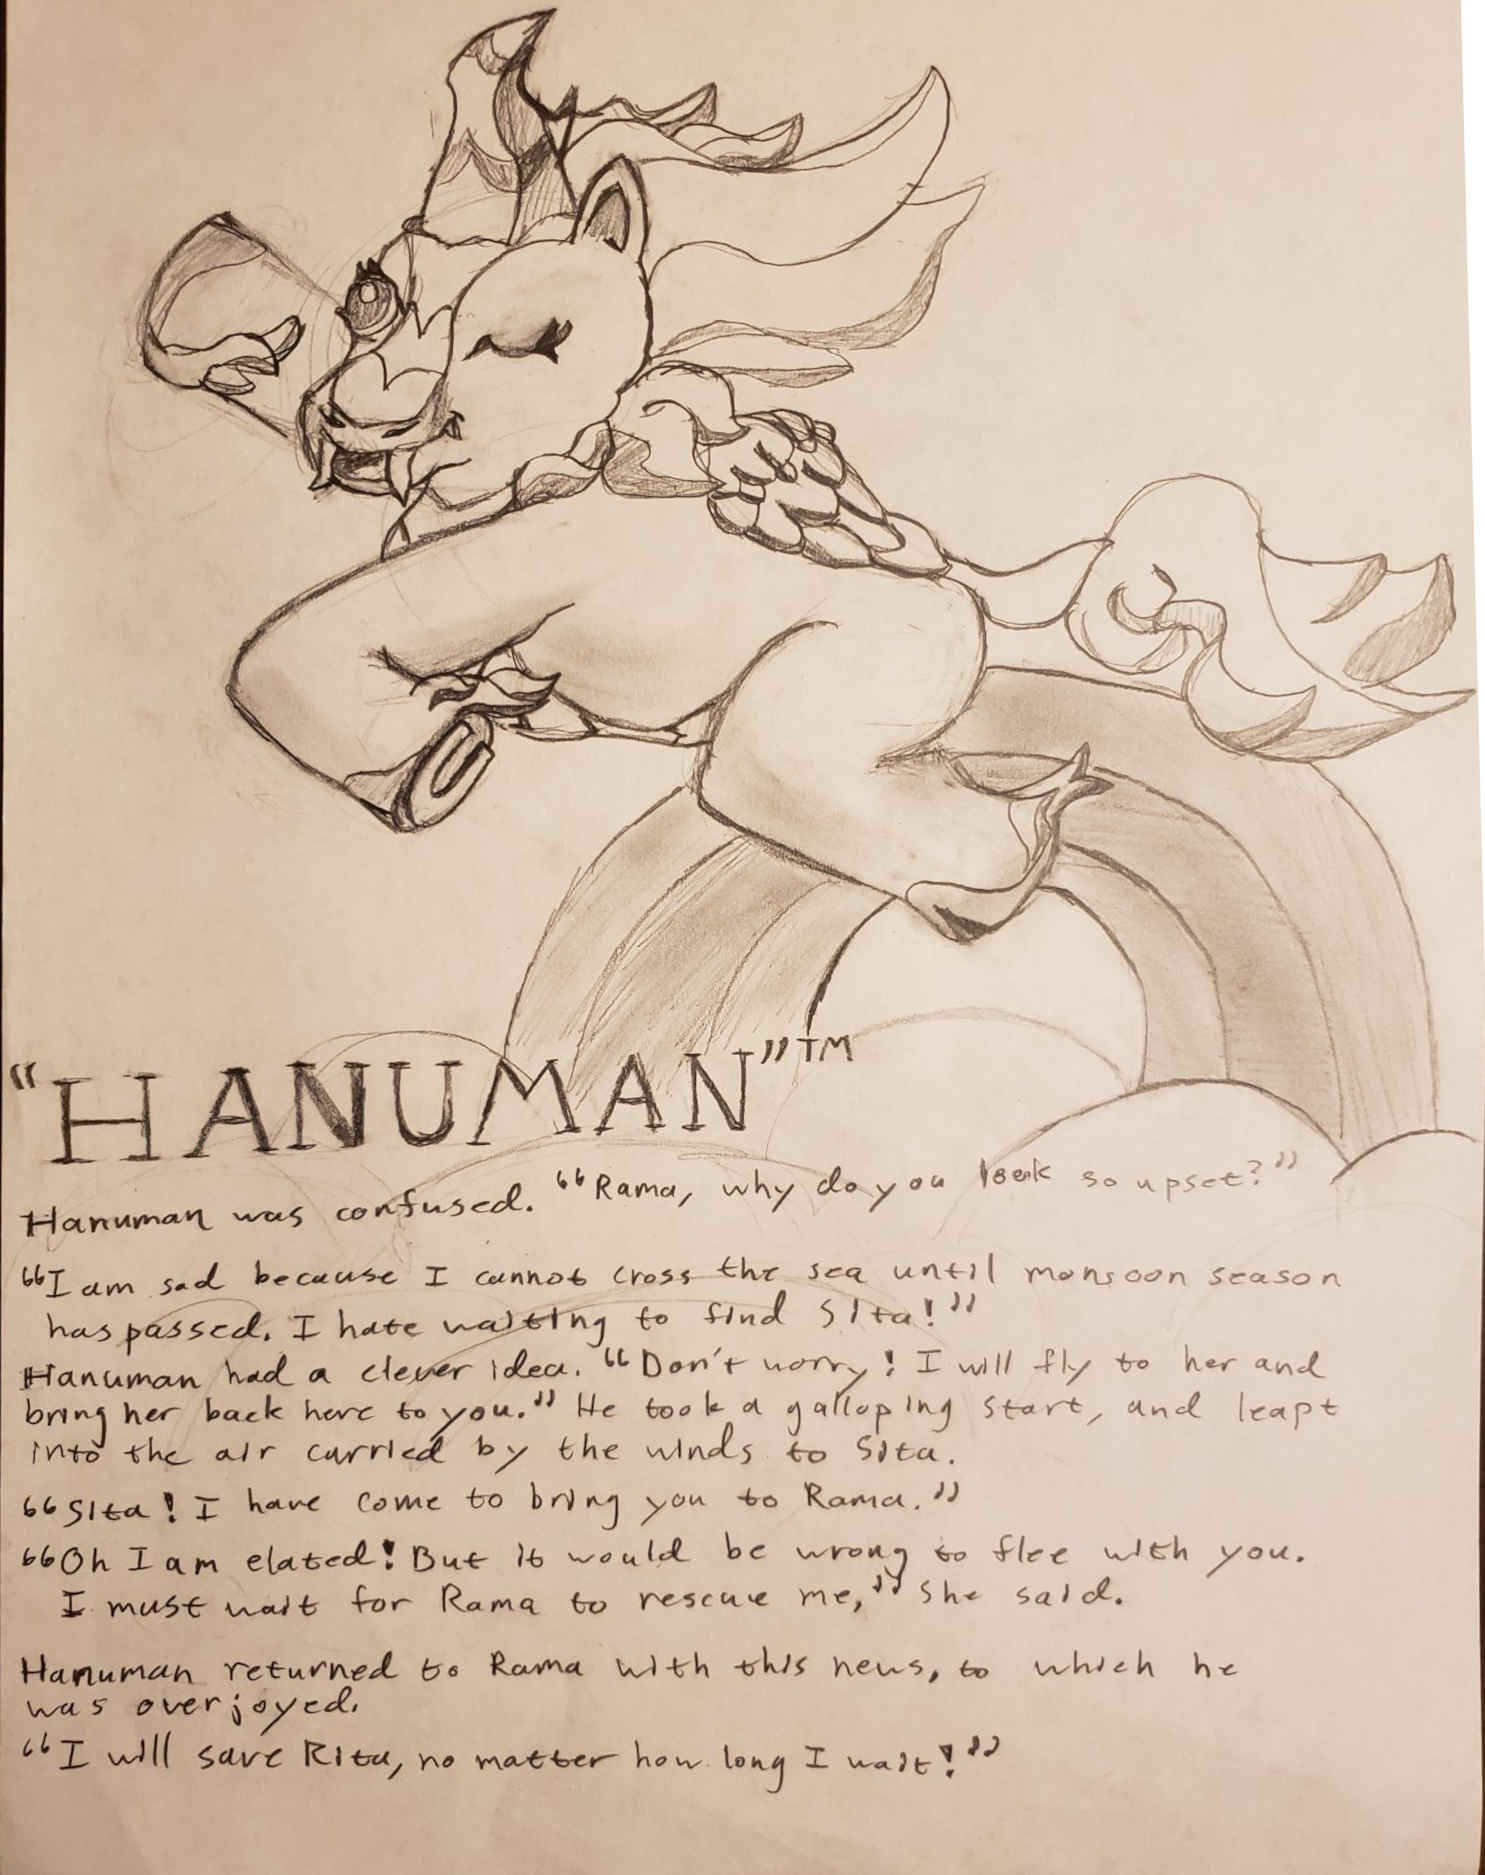 "HANUMAN"™
Hanuman was confused. "Rama, why do you look so upset?"
"I am sad because I cannot cross the sea until monsoon season
has passed. I hate waiting to find Sita!"
Hanuman had a clever idea. "Don't worry! I will fly to her and
bring her back here to you." He took a galloping start, and leapt
into the air carried by the winds to Sita.
"Sita! I have come to bring you to Rama."
"Oh I am elated! But it would be wrong to flee with you.
I must wait for Rama to rescue me," she said.
Hanuman returned to Rama with this news, to which he
was overjoyed.
"I will save Rita, no matter how long I wait!"